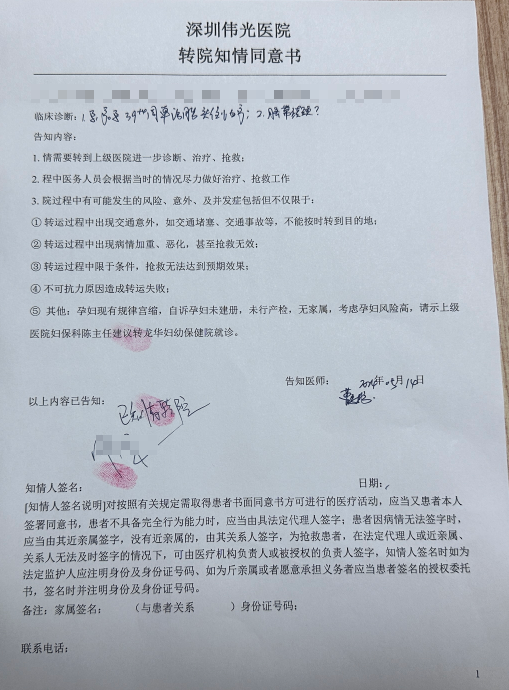 深圳伟光医院
转院知情同意书
临床诊断：1. 39周 单活胎 头位 ；2. ？
告知内容：
1. 情需要转到上级医院进一步诊断、治疗、抢救；
2. 程中医务人员会根据当时的情况尽力做好治疗、抢救工作
3. 院过程中有可能发生的风险、意外、及并发症包括但不仅限于：
① 转运过程中出现交通意外，如交通堵塞、交通事故等，不能按时转到目的地；
② 转运过程中出现病情加重、恶化，甚至抢救无效；
③ 转运过程中限于条件，抢救无法达到预期效果；
④ 不可抗力原因造成转运失败；
⑤ 其他：孕妇现有规律宫缩，自诉孕妇未建册，未行产检，无家属，考虑孕妇风险高，请示上级
医院妇保科陈主任建议转龙华妇幼保健院就诊。
告知医师： 年05月14日
以上内容已告知：
已知情转院
知情人签名： 日期：
[知情人签名说明]对按照有关规定需取得患者书面同意方可进行的医疗活动，应当又患者本人
签署同意书，患者不具备完全行为能力时，应当由具法定代理人签字；患者因病情无法签字时，
应当由其近亲属签字，没有近亲属的，由其关系人签字，为抢救患者，在法定代理人或近亲属、
关系人无法及时签字的情况下，可由医疗机构负责人或被授权的负责人签字，知情人签名时如为
法定监护人应注明身份及身份证号码、如为斤亲属或者愿意承担义务者应当患者签名的授权委托
书，签名时并注明身份及身份证号码。
备注：家属签名： （与患者关系 ）身份证号码：
联系电话：
1